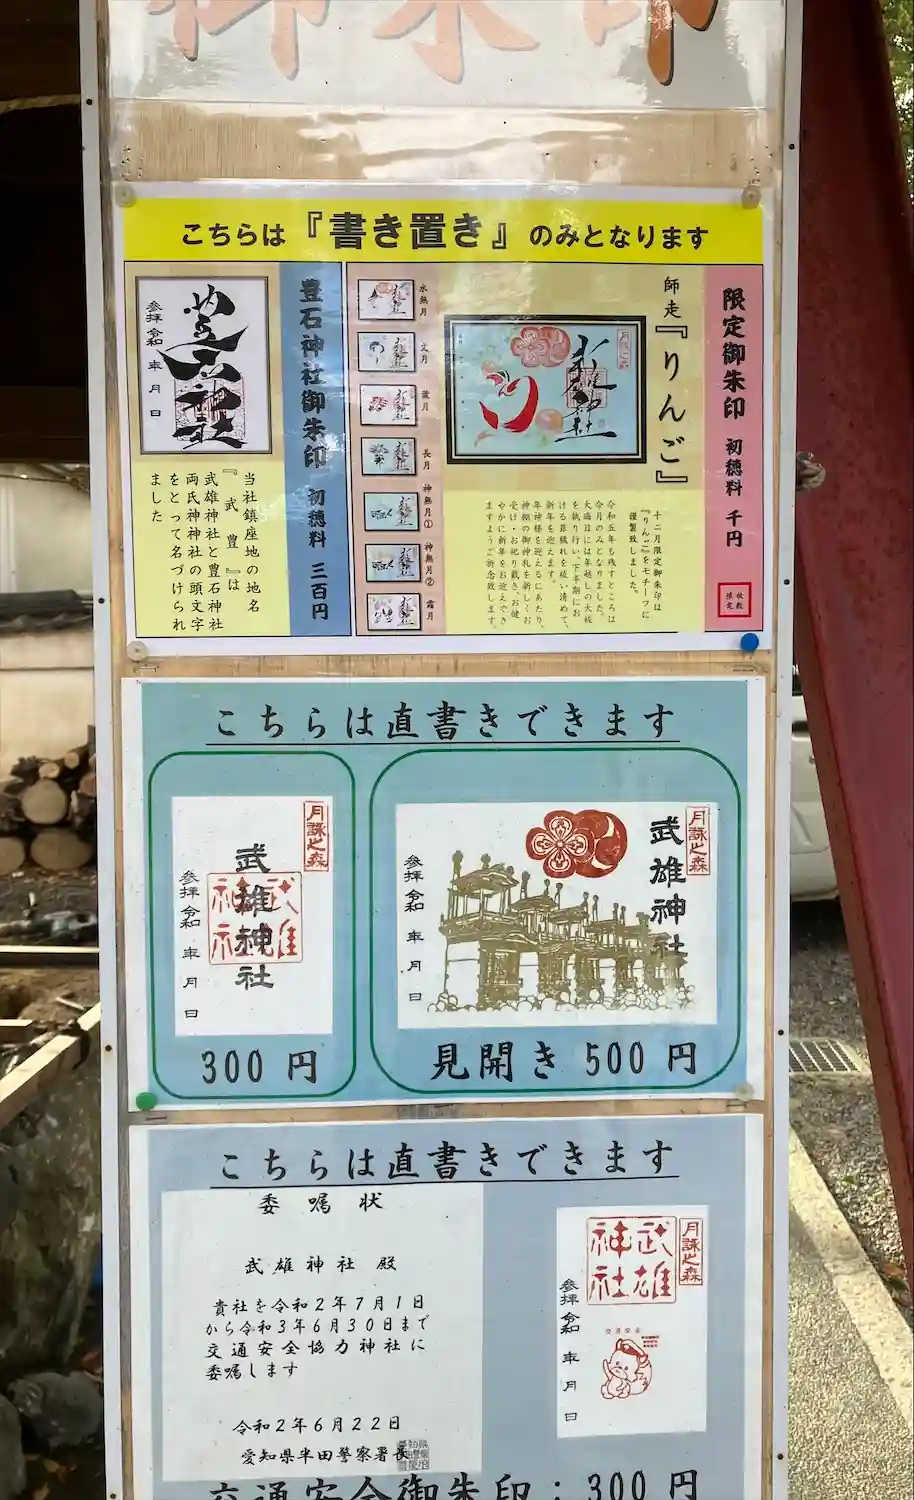 御朱印
こちらは『書き置き』のみとなります
限定御朱印 初穂料 千円
師走『りんご』
十二月限定御朱印は
『りんご』をモチーフに
謹製致しました。
令和五年も残すところは
今月のみとなりました。
大晦日には年越しの大祓
を執り行い、下半期にお
ける罪穢れを祓い清めて、
新年を迎えます。
年神様を迎えるにあたり、
神棚の御神札を新しくお
受け・お祀り戴き、お健
やかに新年をお迎えでき
ますようご祈念致します。
水無月
文月
葉月
長月
神無月①
神無月②
霜月
豊石神社御朱印 初穂料 三百円
参拝 令和 年 月 日
当社鎮座地の地名
『武豊』は
武雄神社と豊石神社
両氏神神社の頭文字
をとって名づけられ
ました
こちらは直書きできます
月詠之森
武雄神社
武雄神社
参拝 令和 年 月 日
300 円
月詠之森
武雄神社
参拝 令和 年 月 日
見開き 500 円
こちらは直書きできます
委嘱状
武雄神社 殿
貴社を令和2年7月1日
から令和3年6月30日まで
交通安全協力神社に
委嘱します
令和2年6月22日
愛知県半田警察署長
月詠之森
武雄神社
参拝 令和 年 月 日
交通安全
交通安全御朱印:300 円